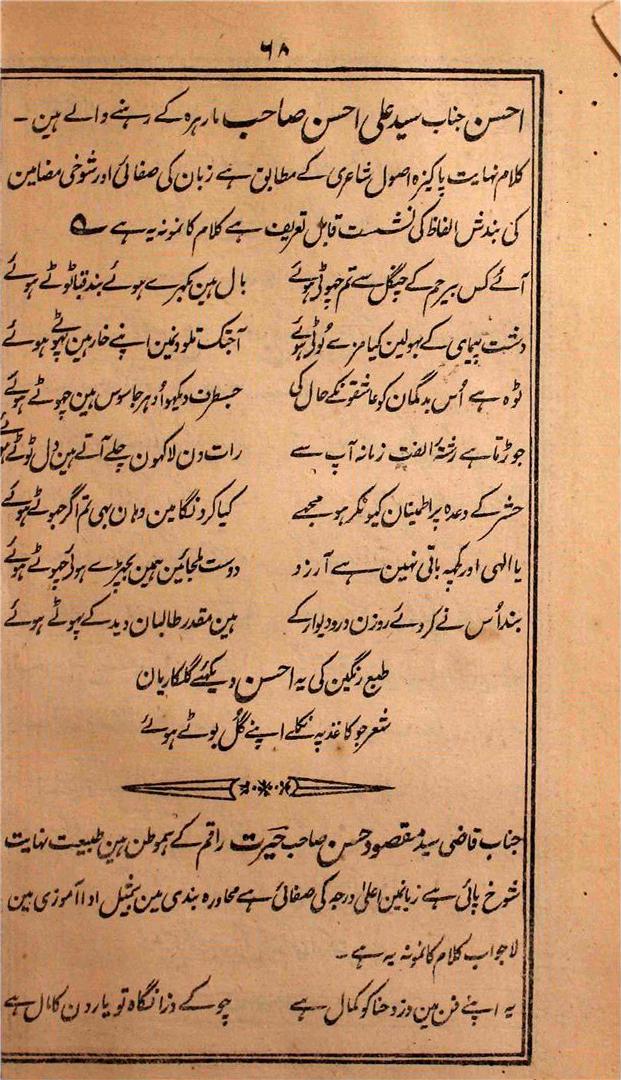 ۶۸
احسن جناب سید علی احسن صاحب مارہرہ کے رہنے والے ہین ۔
کلام نہایت پاکیزہ اصول شاعری کے مطابق ہے زبان کی صفائی اور شوخی مضامین
کی بندش الفاظ کی نشست قابل تعریف ہے کلام کا نمونہ یہ ہے
آئے کس بیرحم کے چنگل سے تم چھوٹی ہوئے بال ہین بکہرے ہوئے بند قبا ٹوٹے ہوئے
دشت پیمای کے بہولین کیا مزے لوٹی ہوئے آجتک تلوونمین اپنے خار ہین ٹہوٹے ہوئے
ٹوہ ہے اُس بدگمان کو عاشقونکے حال کی جسطرف دیکھو اُدہر جاسوس ہین چھوٹے ہوئے
جوڑتا ہے رشتۂ الفت زمانہ آپ سے رات دن لاکہون چلے آتے ہین دل ٹوٹے ہوئے
حشر کے وعدہ پر اطمینان کیونکر ہو مجھے کیا کرونگا مین وہان بہی تم اگر جہوٹے ہوئے
یا الہی اور کچہہ باقی نہین ہے آرزو دوست ملجائین ہمین بچہڑے ہوئے چھوٹے ہوئے
بند اُس نے کردئے روزن در و دیوار کے ہین مقدر طالبان دید کے پہوٹے ہوئے
طبع رنگین کی یہ احسن دیکہئے گلکاریان
شعر جو کاغذ پہ نکلے اپنے گل بوٹے ہوئے
جناب قاضی سید مقصود حسن صاحب حیرت راقم کے ہموطن ہین طبیعت نہایت
شوخ پائی ہے زبانمین اعلیٰ درجہ کی صفائی ہے محاورہ بندی مین بیمثیل ادا آموزی مین
لاجواب کلام کا نمونہ یہ ہے ۔
یہ اپنے فن مین دزد حنا کو کمال ہے چوکے ذرا نگاہ تو یارون کا مال ہے